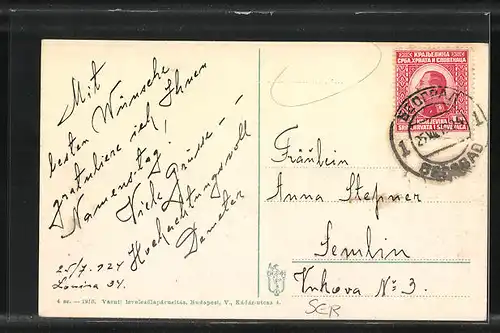 Mit
besten Wünsche
gratuliere ich Ihnen
Namenstag!
Viele Grüsse -
Hochachtungsvoll
Demeter
25/7. 924
Lomina 34.
КРАЉЕВИНА
СРБА, ХРВАТА И СЛОВЕНАЦА
KRALJEVINA
SRBA, HRVATA I SLOVENACA
БЕОГРАД
1
1
BEOGRAD
Fräulein
Anna Stepner
Semlin
Vukova No: 3.
SCR
4 sz. —1918. Vasuti levelezőlapárusitás, Budapest, V., Kádár-utca 4.